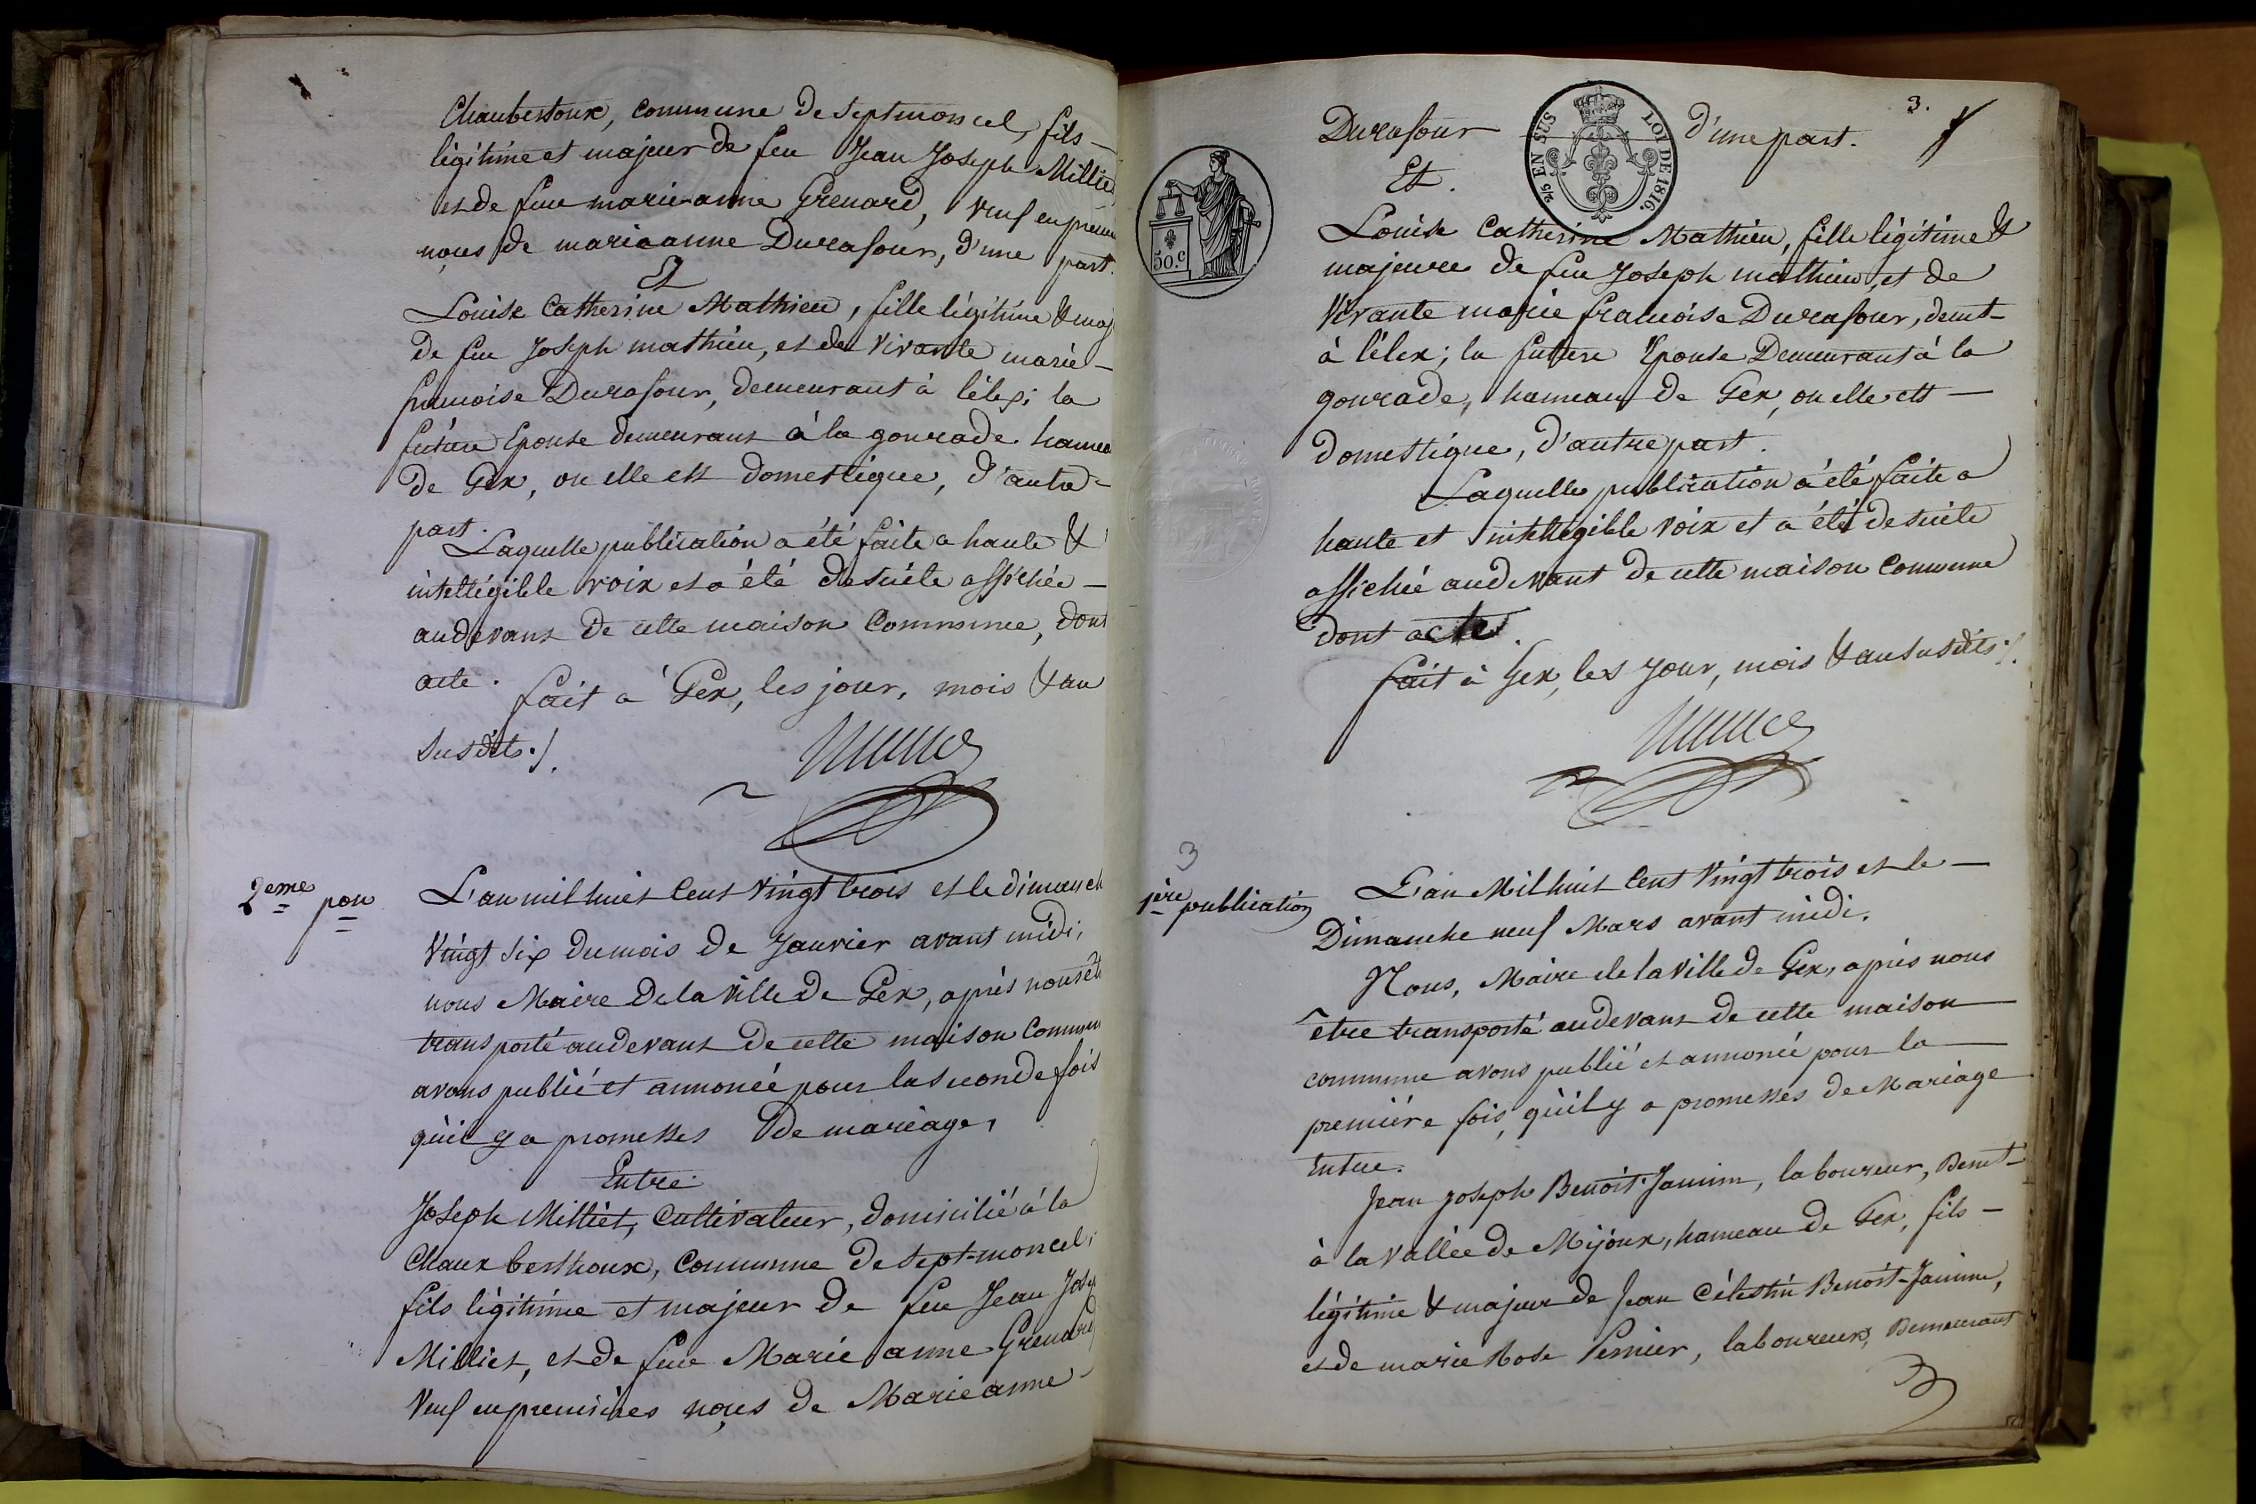 Chaubertoux, commune de Septmoncel, fils
légitime et majeur de feu Jean Joseph Milliet
et de feue marie-anne Grenard, veuf en prem
noçes de marieanne Durafour, d'une part.
Et
Louise Catherine Mathieu, fille légitime & maj
de feu Joseph mathieu, et de vivante marie-
francoise Durafour, demeurant à lélex; la
future Epouse demeurant à la gourade hamea
de Gex, ou elle est domestique, d'autre
part.
Laquelle publication a été faite a haute &
intelligible voix et a été desuite affichée
audevant de cette maison Commune, dont
acte.
fait a Gex, les jour, mois & an
susdits ./.
2eme pon
L'an mil huit Cent vingt trois et le dimanch
vingt six dumois de Janvier avant midi,
nous Maire De la Ville de Gex, après nous êt
transporté audevant de cette maison Commun
avons publié et annoncé pour la seconde fois
qu'il y a promesses de mariage,
Entre
Joseph Milliet, Cultivateur, domicilié à la
Chaux berthoux, Commune de Sept-moncel,
fils légitime et majeur de feu Jean Josep
Milliet, et de feue Marie anne Grenard
Veuf en premières noçes de Marie anne
3.
Durafour d'une part.
2/5 EN SUS LOI DE 1816.
Et.
50.c
Louise Catherine Mathieu, fille légitime &
majeure de feu Joseph mathieu, et de
Vivante marie francoise Durafour, demt
à lélex; la future Epouse Demeurant à la
gourade, hameau de Gex, ou elle est
domestique, d'autre part.
Laquelle publication a été faite a
haute et intelligible voix et a été desuite
affichée audevant de cette maison Commune
dont acte.
fait à Gex, les jour, mois & an susdits ./.
3
1ère publication
L'an Mil huit Cent Vingt trois et le
Dimanche neuf Mars avant midi.
Nous, Maire de la ville de Gex, après nous
être transporté audevant de cette maison
commune avons publié et annoncé pour la
première fois, qu'il y a promesses de Mariage
Entre.
Jean Joseph Benoit-Jannin, laboureur, Demt
à la vallée de Mijoux, hameau de Gex, fils
légitime & majeur de Jean Célestin Benoit-Jannin,
et de marie Rose Pernier, laboureurs, Demeurant